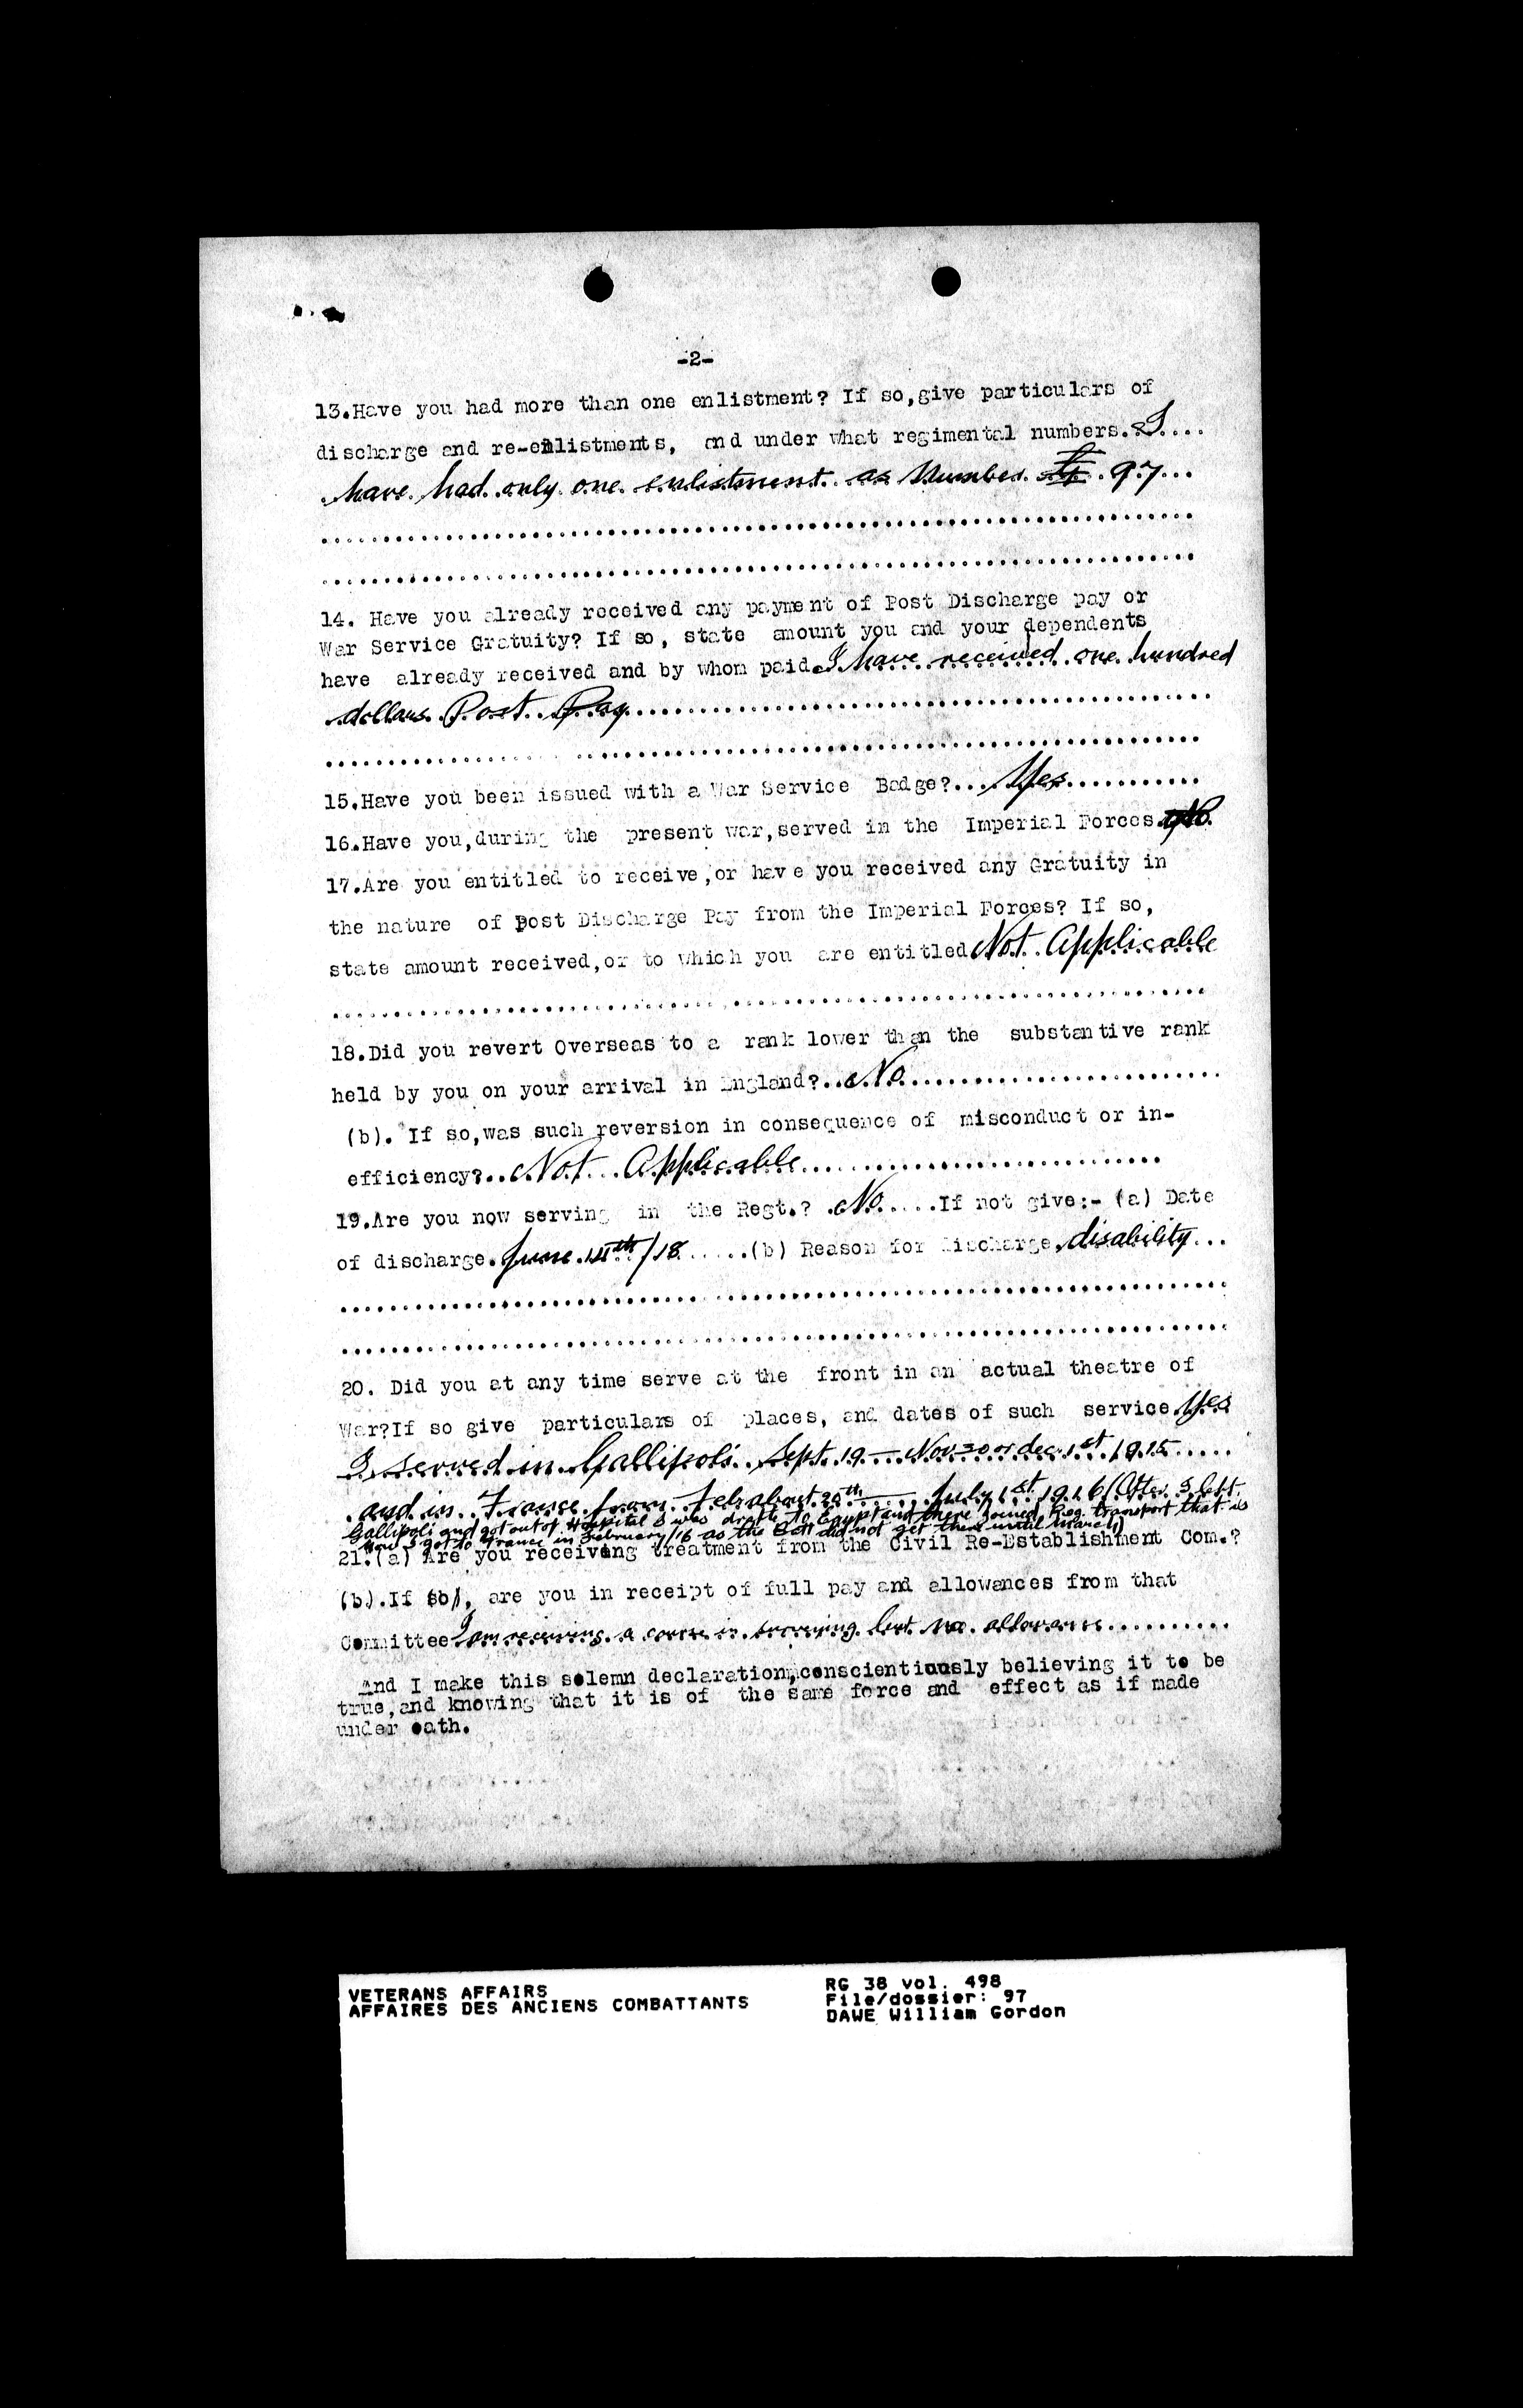 -2-
13.Have you had more than one enlistment? If so,give particulars of
discharge and re-enlistments, and under what regimental numbers..I....
have had only one enlistment as Number 97...
14. Have you already received any payment of Post Discharge pay or
War Service Gratuity? If so, state amount you and your dependents
have already received and by whom paid.I have received one hundred
dollars Post Pay
15.Have you been issued with a War Service Badge?....Yes...........
16.Have you,during the present war,served in the Imperial Forces.No.
17.Are you entitled to receive,or have you received any Gratuity in
the nature of Post Discharge Pay from the Imperial Forces? If so,
state amount received,or to which you are entitled.Not Applicable
18.Did you revert Overseas to a rank lower than the substantive rank
held by you on your arrival in England?..No..........................
(b). If so,was such reversion in consequence of misconduct or in-
efficiency?..Not Applicable..............................
19.Are you now serving in the Regt.? .No.....If not give:- (a) Date
of discharge.June 14th/18......(b) Reason for discharge.disability...
20. Did you at any time serve at the front in an actual theatre of
War?If so give particulars of places, and dates of such service.Yes
I served in Gallipoli Sept. 19 — Nov 30 or dec 1st 1915.....
and in France from Feb about 25th — July 1st 1916 (After I left
Gallipoli and got out of Hospital I was draft to Egypt and there joined Reg. transport that is
how I got to France in February/16 as the Batt did not get there until March)
21.(a) Are you receiving treatment from the Civil Re-Establishment Com.?
(b).If so, are you in receipt of full pay and allowances from that
Committee I am receiving a course in but no allowance..........
And I make this solemn declaration,conscientiously believing it to be
true,and knowing that it is of the same force and effect as if made
under oath.
VETERANS AFFAIRS
AFFAIRES DES ANCIENS COMBATTANTS
RG 38 vol. 498
File/dossier: 97
DAWE William Gordon